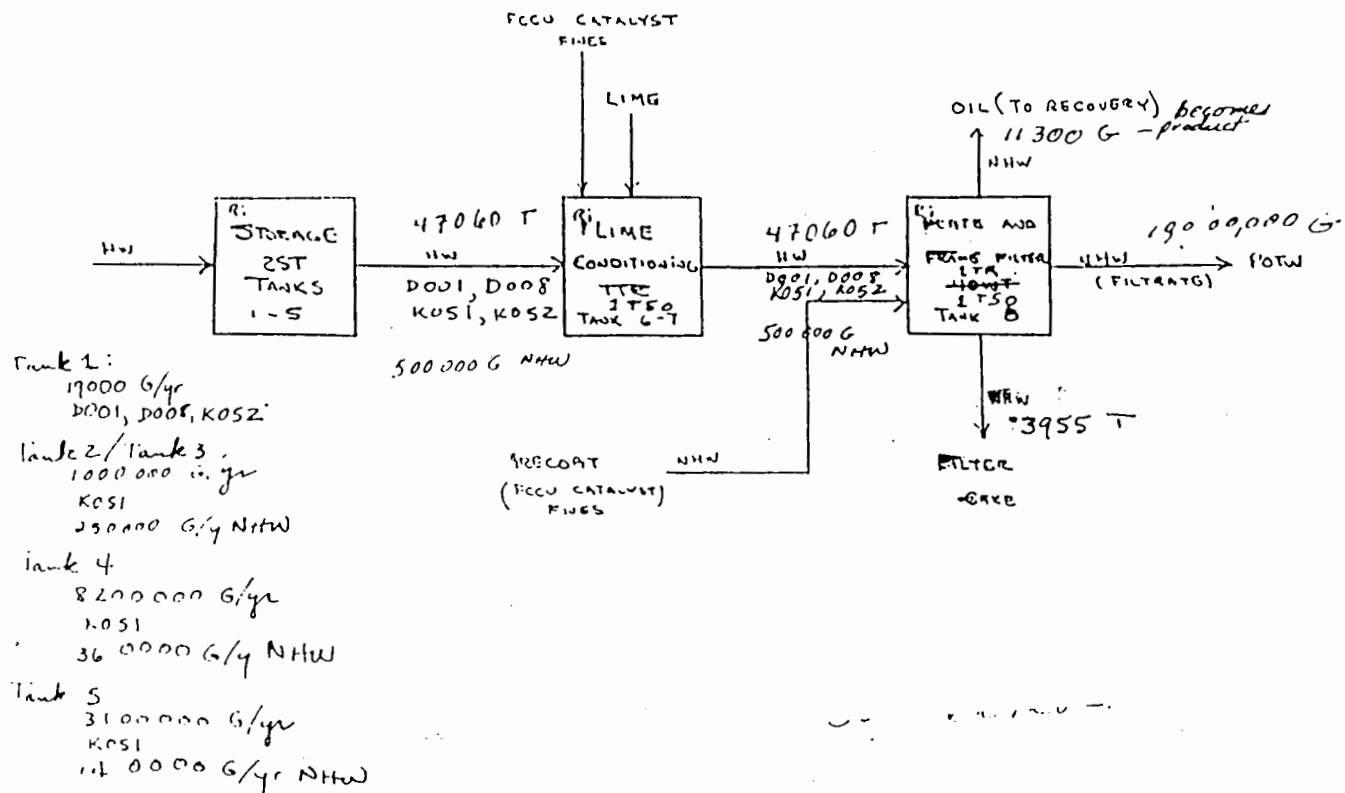 FCCU CATALYST
FINES
LIME
OIL (TO RECOVERY) becomes
11300 G - product
NHW
STORAGE
2ST
TANKS
1-5
HW
47060 T
HW
D001, D008
K051, K052
500000 G NHW
LIME
CONDITIONING
1T50
TANK 6-7
47060 T
HW
D001, D008
K051, K052
500000 G
NHW
PLATE AND
FRAME FILTER
1TR
1T50
TANK 8
NHW
(FILTRATE)
POTW
3955 T
FILTER
CAKE
PRECOAT
(FCCU CATALYST)
FINES
NHW
Tank 1:
D001, D008, K052
Tank 2/Tank 3
K051
250000 G/y NHW
Tank 4
8200000 G/yr
K051
360000 G/y NHW
Tank 5
3100000 G/yr
K051
0000 G/yr NHW